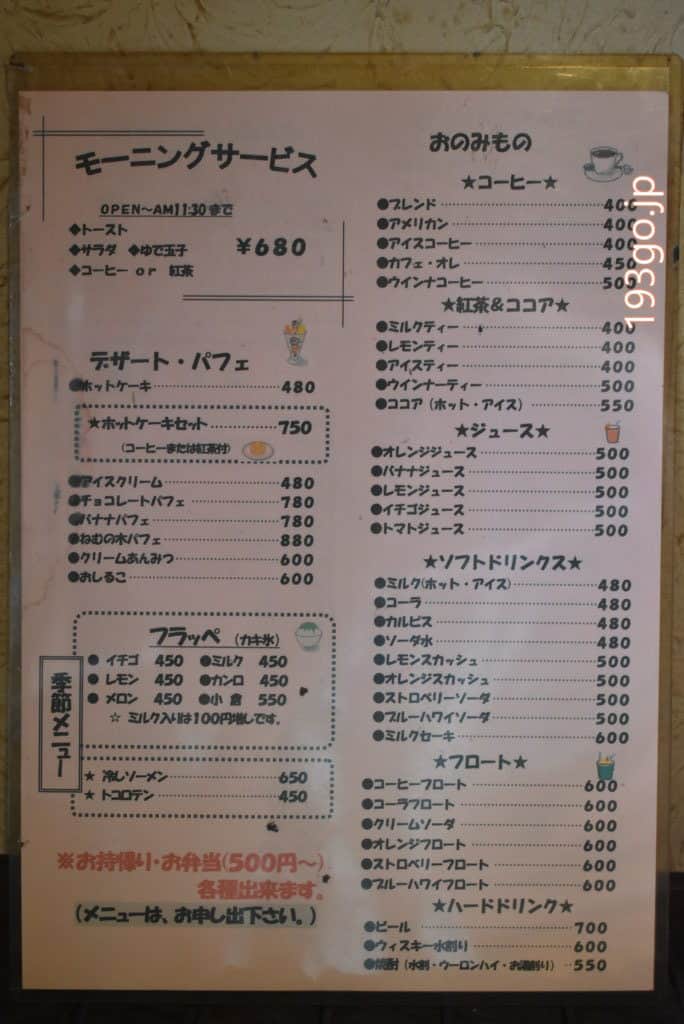 モーニングサービス
OPEN～AM11:30まで
◆トースト
◆サラダ ◆ゆで玉子 ¥680
◆コーヒー or 紅茶
デザート・パフェ
●ホットケーキ 480
★ホットケーキセット 750
(コーヒーまたは紅茶付)
●アイスクリーム 480
●チョコレートパフェ 780
●バナナパフェ 780
●ねむの木パフェ 880
●クリームあんみつ 600
●おしるこ 600
季節メニュー
フラッペ (カキ氷)
● イチゴ 450 ●ミルク 450
● レモン 450 ●カンロ 450
● メロン 450 ●小倉 550
☆ ミルク入りは100円増しです。
★ 冷しソーメン 650
★ トコロテン 450
※お持帰り・お弁当(500円～)
各種出来ます。
(メニューは、お申し出下さい。)
おのみもの
★コーヒー★
●ブレンド 400
●アメリカン 400
●アイスコーヒー 400
●カフェ・オレ 450
●ウインナコーヒー 500
★紅茶＆ココア★
●ミルクティー 400
●レモンティー 400
●アイスティー 400
●ウインナーティー 500
●ココア (ホット・アイス) 550
★ジュース★
●オレンジジュース 500
●バナナジュース 500
●レモンジュース 500
●イチゴジュース 500
●トマトジュース 500
★ソフトドリンクス★
●ミルク(ホット・アイス) 480
●コーラ 480
●カルピス 480
●ソーダ水 480
●レモンスカッシュ 500
●オレンジスカッシュ 500
●ストロベリーソーダ 500
●ブルーハワイソーダ 500
●ミルクセーキ 600
★フロート★
●コーヒーフロート 600
●コーラフロート 600
●クリームソーダ 600
●オレンジフロート 600
●ストロベリーフロート 600
●ブルーハワイフロート 600
★ハードドリンク★
●ビール 700
●ウィスキー水割り 600
●焼酎 (水割・ウーロンハイ・お湯割り) 550
193go.jp